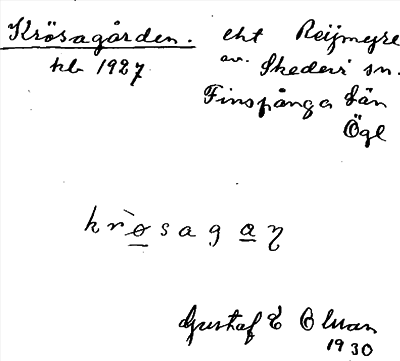 Krösagården. eht Reijmyre
hb 1927 av. Skedevi sn.
Finspånga län
Ögl
krøsagaɳ
Gustaf E Olman
1930